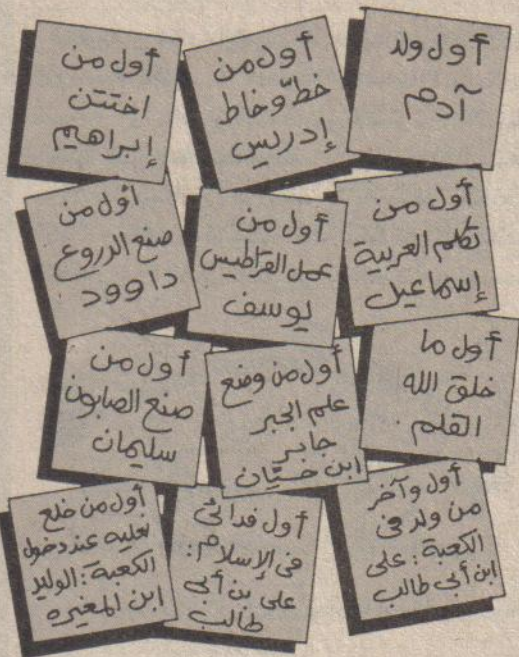 أول ولد
آدم
أول من
خطّ وخاط
إدريس
أول من
اختتن
إبراهيم
أول من
تكلم العربية
إسماعيل
أول من
عمل القراطيس
يوسف
أول من
صنع الدروع
داوود
أول ما
خلق الله
القلم
أول من وضع
علم الجبر
جابر
ابن حيّان
أول من
صنع الصابون
سليمان
أول وآخر
من ولد فى
الكعبة : على
ابن أبى طالب
أول فدائى
فى الإسلام :
على بن أبى
طالب
أول من خلع
نعليه عند دخول
الكعبة : الوليد
ابن المغيره